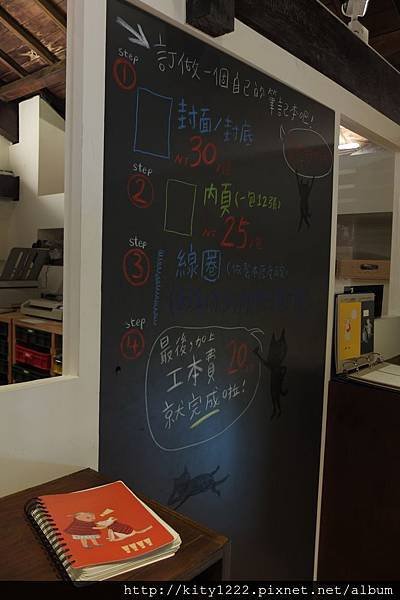 訂做一個自己的筆記本吧!
step
1
封面/封底
NT 30
step
2
內頁(一包12張)
NT 25
step
3
線圈
step
4
最後加上
工本費 20
就完成啦!
http://kity1222.pixnet.net/album